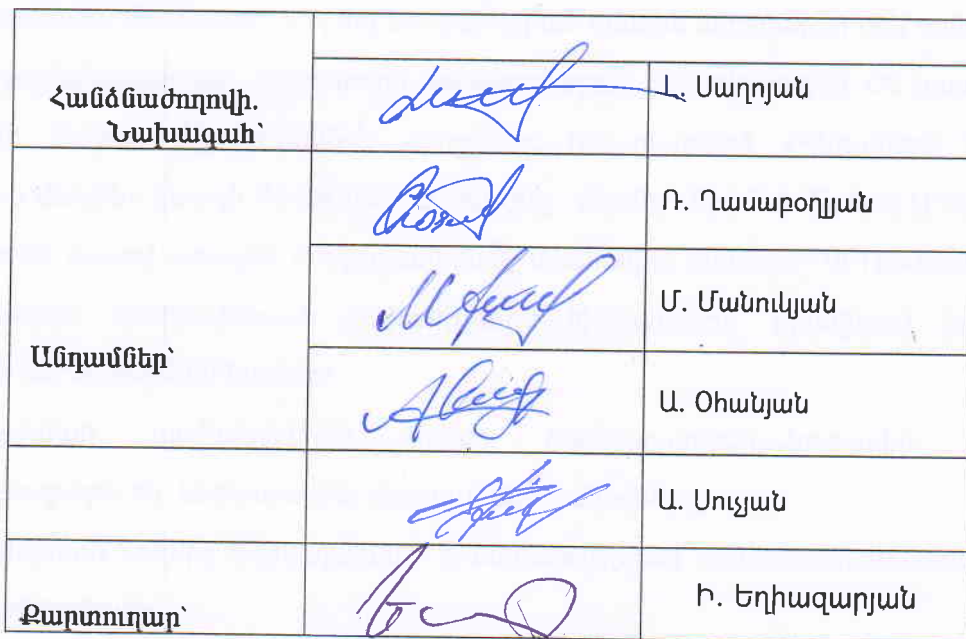 Հանձնաժողովի.
Նախագահ՝
Լ. Սաղոյան
Ռ. Ղասաբօղլյան
Մ. Մանուկյան
Անդամներ՝
Ա. Օհանյան
Ա. Սուչյան
Քարտուղար՝
Ի. Եղիազարյան